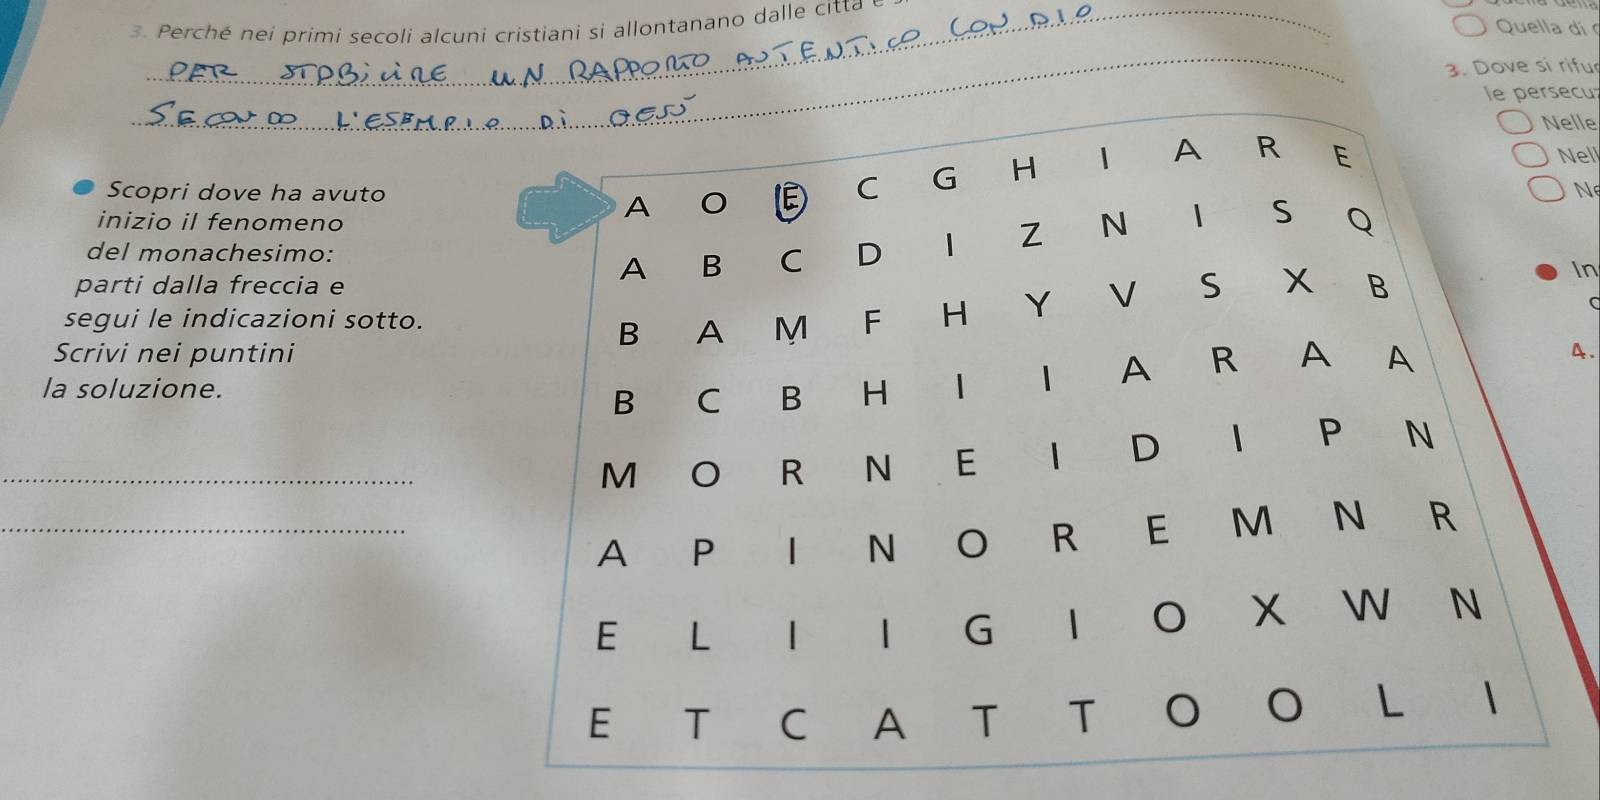 3. Perché nei primi secoli alcuni cristiani si allontanano dalle città e
PER STDBiLiRE UN RAPPORTO AUTENTICO CON DIO
SECONDO L'ESEMPIO Di GESÙ
Scopri dove ha avuto
inizio il fenomeno
del monachesimo:
parti dalla freccia e
segui le indicazioni sotto.
Scrivi nei puntini
la soluzione.
A O E C G H I A R E
A B C D I Z N I S Q
B A M F H Y V S X B
B C B H I I A R A A
M O R N E I D I P N
A P I N O R E M N R
E L I I G I O X W N
E T C A T T O O L I
Quella di
3. Dove si rifug
le persecuz
Nelle
Nell
Ne
In
4.